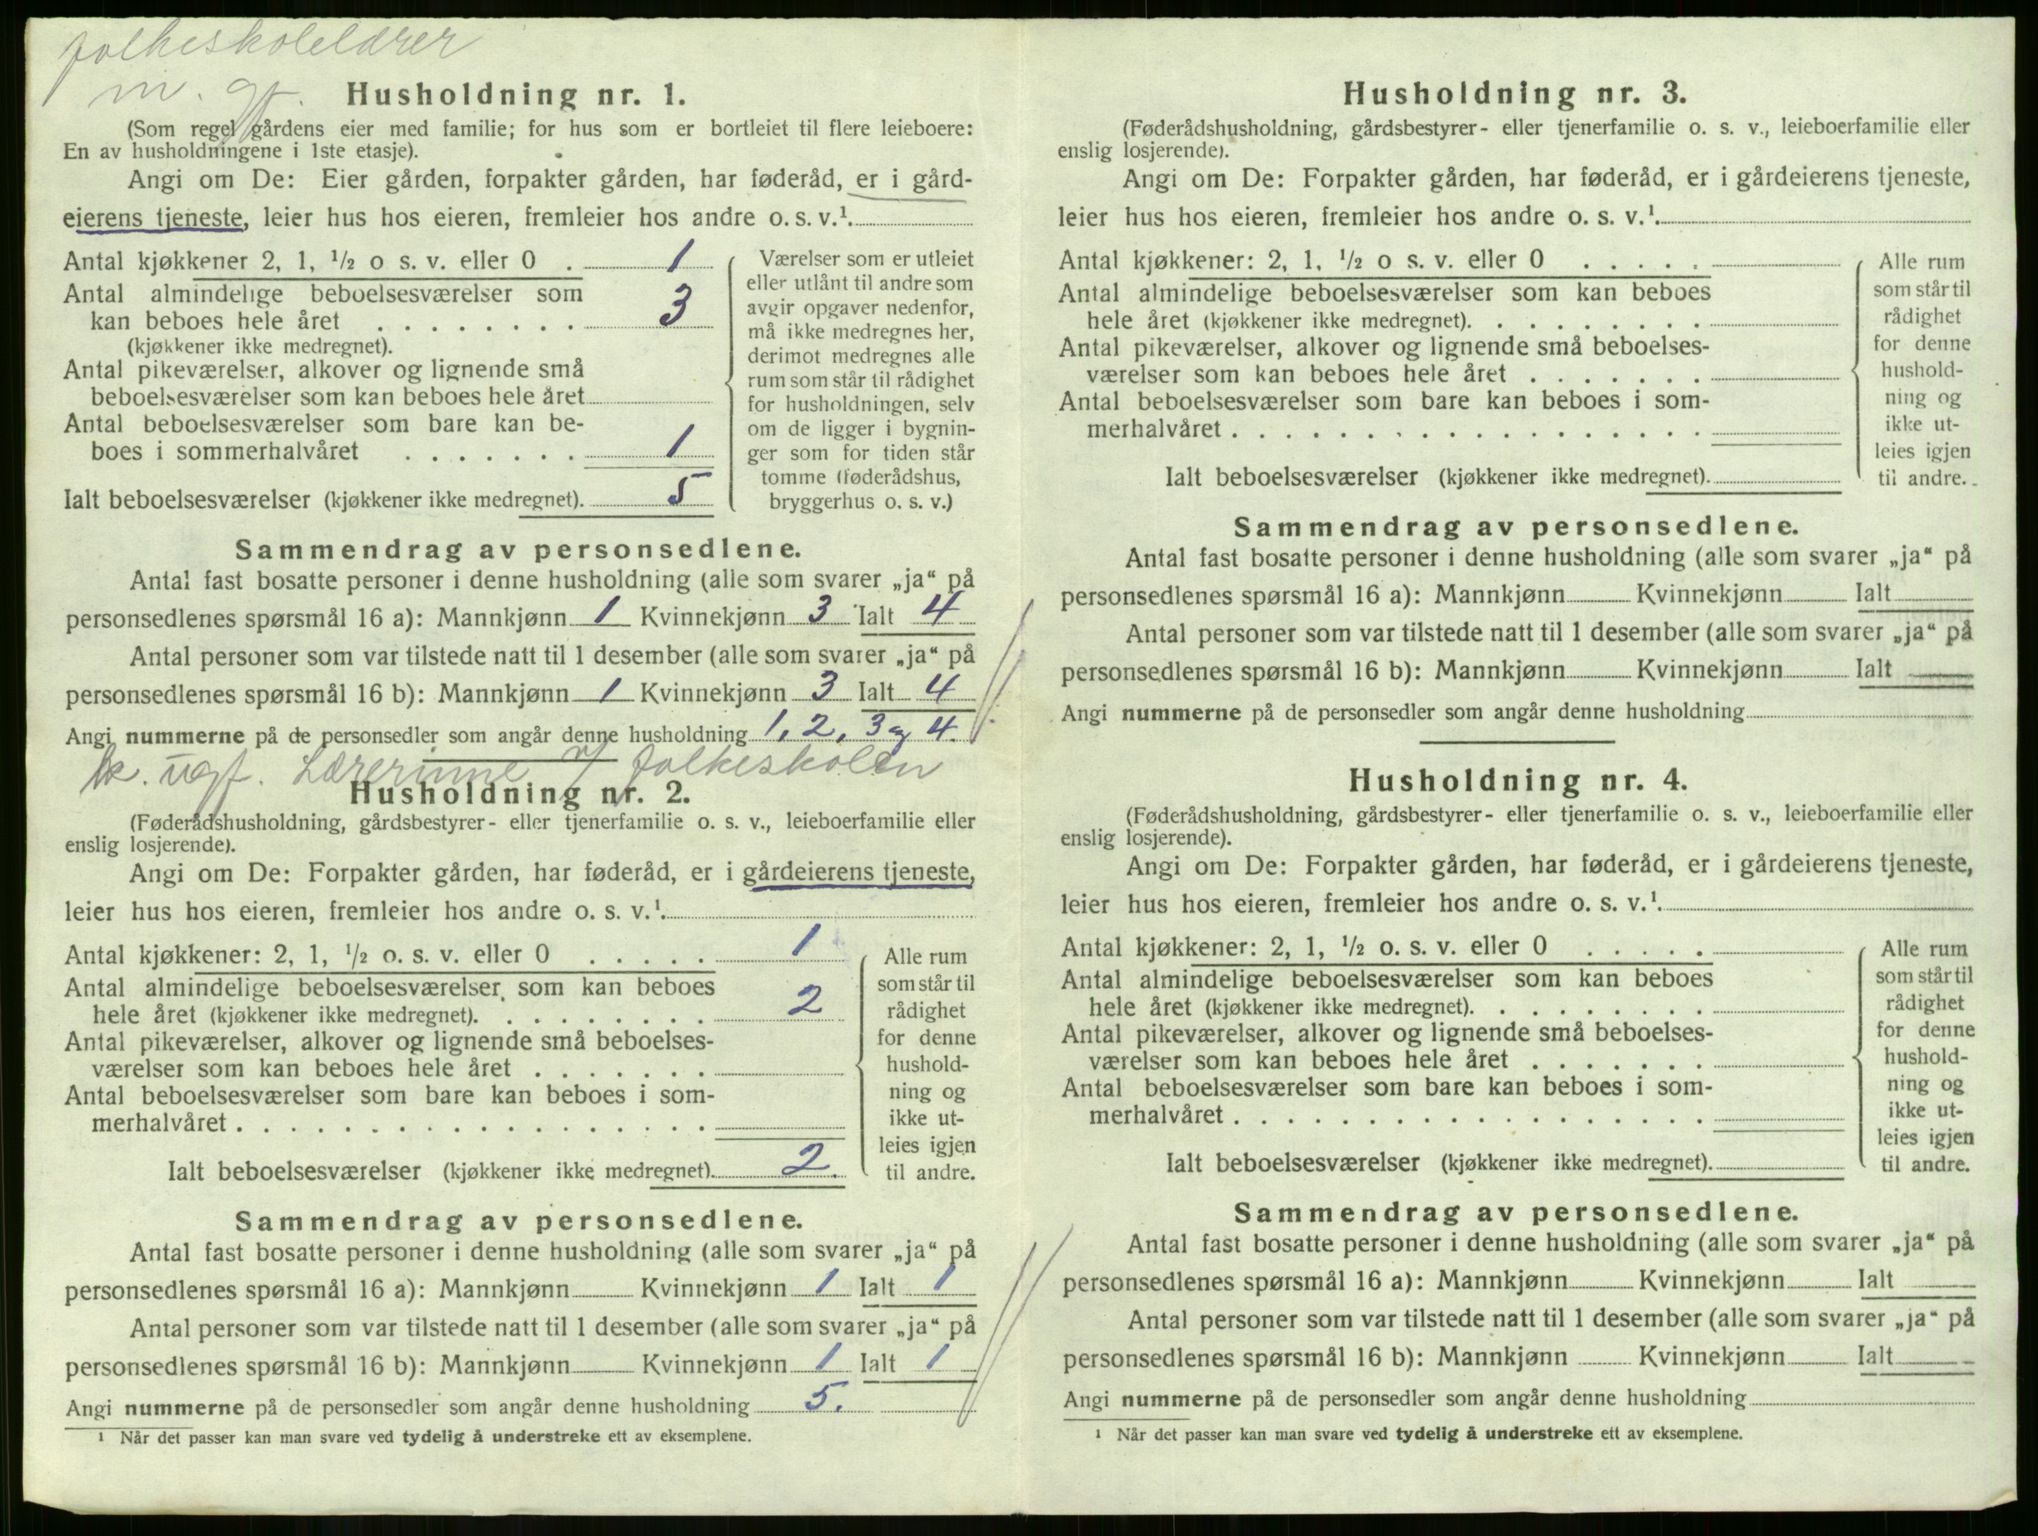 folkeskolelærer
m. gf.
Husholdning nr. 1.
(Som regel gårdens eier med familie; for hus som er bortleiet til flere leieboere:
En av husholdningene i 1ste etasje).
Angi om De: Eier gården, forpakter gården, har føderåd, er i gård-
eierens tjeneste, leier hus hos eieren, fremleier hos andre o. s. v.¹
Antal kjøkkener 2, 1, ½ o s. v. eller 0 . 1
Antal almindelige beboelsesværelser som
kan beboes hele året . . . . . . . . 3
(kjøkkener ikke medregnet).
Antal pikeværelser, alkover og lignende små
beboelsesværelser som kan beboes hele året
Antal beboelsesværelser som bare kan be-
boes i sommerhalvåret . . . . . . . 1
Ialt beboelsesværelser (kjøkkener ikke medregnet). 5
Værelser som er utleiet
eller utlånt til andre som
avgir opgaver nedenfor,
må ikke medregnes her,
derimot medregnes alle
rum som står til rådighet
for husholdningen, selv
om de ligger i bygnin-
ger som for tiden står
tomme (føderådshus,
bryggerhus o. s. v.)
Sammendrag av personsedlene.
Antal fast bosatte personer i denne husholdning (alle som svarer „ja“ på
personsedlenes spørsmål 16 a): Mannkjønn 1 Kvinnekjønn 3 Ialt 4
Antal personer som var tilstede natt til 1 desember (alle som svarer „ja“ på
personsedlenes spørsmål 16 b): Mannkjønn 1 Kvinnekjønn 3 Ialt 4
Angi nummerne på de personsedler som angår denne husholdning 1, 2, 3 og 4.
k. ugf. Lærerinne v/ folkeskolen
Husholdning nr. 2.
(Føderådshusholdning, gårdsbestyrer- eller tjenerfamilie o. s. v., leieboerfamilie eller
enslig losjerende).
Angi om De: Forpakter gården, har føderåd, er i gårdeierens tjeneste,
leier hus hos eieren, fremleier hos andre o. s. v.¹
Antal kjøkkener: 2, 1, ½ o. s. v. eller 0 . . . . . 1
Antal almindelige beboelsesværelser som kan beboes
hele året (kjøkkener ikke medregnet). . . . . . . . . 2
Antal pikeværelser, alkover og lignende små beboelses-
værelser som kan beboes hele året . . . . . . .
Antal beboelsesværelser som bare kan beboes i som-
merhalvåret . . . . . . . . . . . . . . . . . .
Ialt beboelsesværelser (kjøkkener ikke medregnet). 2.
Alle rum
som står til
rådighet
for denne
hushold-
ning og
ikke ut-
leies igjen
til andre.
Sammendrag av personsedlene.
Antal fast bosatte personer i denne husholdning (alle som svarer „ja“ på
personsedlenes spørsmål 16 a): Mannkjønn Kvinnekjønn 1 Ialt 1
Antal personer som var tilstede natt til 1 desember (alle som svarer „ja“ på
personsedlenes spørsmål 16 b): Mannkjønn Kvinnekjønn 1 Ialt 1
Angi nummerne på de personsedler som angår denne husholdning 5.
¹ Når det passer kan man svare ved tydelig å understreke ett av eksemplene.
Husholdning nr. 3.
(Føderådshusholdning, gårdsbestyrer- eller tjenerfamilie o. s. v., leieboerfamilie eller
enslig losjerende).
Angi om De: Forpakter gården, har føderåd, er i gårdeierens tjeneste,
leier hus hos eieren, fremleier hos andre o. s. v.¹
Antal kjøkkener: 2, 1, ½ o s. v. eller 0 . . . . .
Antal almindelige beboelsesværelser som kan beboes
hele året (kjøkkener ikke medregnet). . . . . . . . .
Antal pikeværelser, alkover og lignende små beboelses-
værelser som kan beboes hele året . . . . . . .
Antal beboelsesværelser som bare kan beboes i som-
merhalvåret . . . . . . . . . . . . . . . . . .
Ialt beboelsesværelser (kjøkkener ikke medregnet).
Alle rum
som står til
rådighet
for denne
hushold-
ning og
ikke ut-
leies igjen
til andre.
Sammendrag av personsedlene.
Antal fast bosatte personer i denne husholdning (alle som svarer „ja“ på
personsedlenes spørsmål 16 a): Mannkjønn Kvinnekjønn Ialt
Antal personer som var tilstede natt til 1 desember (alle som svarer „ja“ på
personsedlenes spørsmål 16 b): Mannkjønn Kvinnekjønn Ialt
Angi nummerne på de personsedler som angår denne husholdning
Husholdning nr. 4.
(Føderådshusholdning, gårdsbestyrer- eller tjenerfamilie o. s. v., leieboerfamilie eller
enslig losjerende).
Angi om De: Forpakter gården, har føderåd, er i gårdeierens tjeneste,
leier hus hos eieren, fremleier hos andre o. s. v.¹
Antal kjøkkener: 2, 1, ½ o. s. v. eller 0 . . . . .
Antal almindelige beboelsesværelser som kan beboes
hele året (kjøkkener ikke medregnet). . . . . . . . .
Antal pikeværelser, alkover og lignende små beboelses-
værelser som kan beboes hele året . . . . . . .
Antal beboelsesværelser som bare kan beboes i som-
merhalvåret . . . . . . . . . . . . . . . . . .
Ialt beboelsesværelser (kjøkkener ikke medregnet).
Alle rum
som står til
rådighet
for denne
hushold-
ning og
ikke ut-
leies igjen
til andre.
Sammendrag av personsedlene.
Antal fast bosatte personer i denne husholdning (alle som svarer „ja“ på
personsedlenes spørsmål 16 a): Mannkjønn Kvinnekjønn Ialt
Antal personer som var tilstede natt til 1 desember (alle som svarer „ja“ på
personsedlenes spørsmål 16 b): Mannkjønn Kvinnekjønn Ialt
Angi nummerne på de personsedler som angår denne husholdning
¹ Når det passer kan man svare ved tydelig å understreke ett av eksemplene.